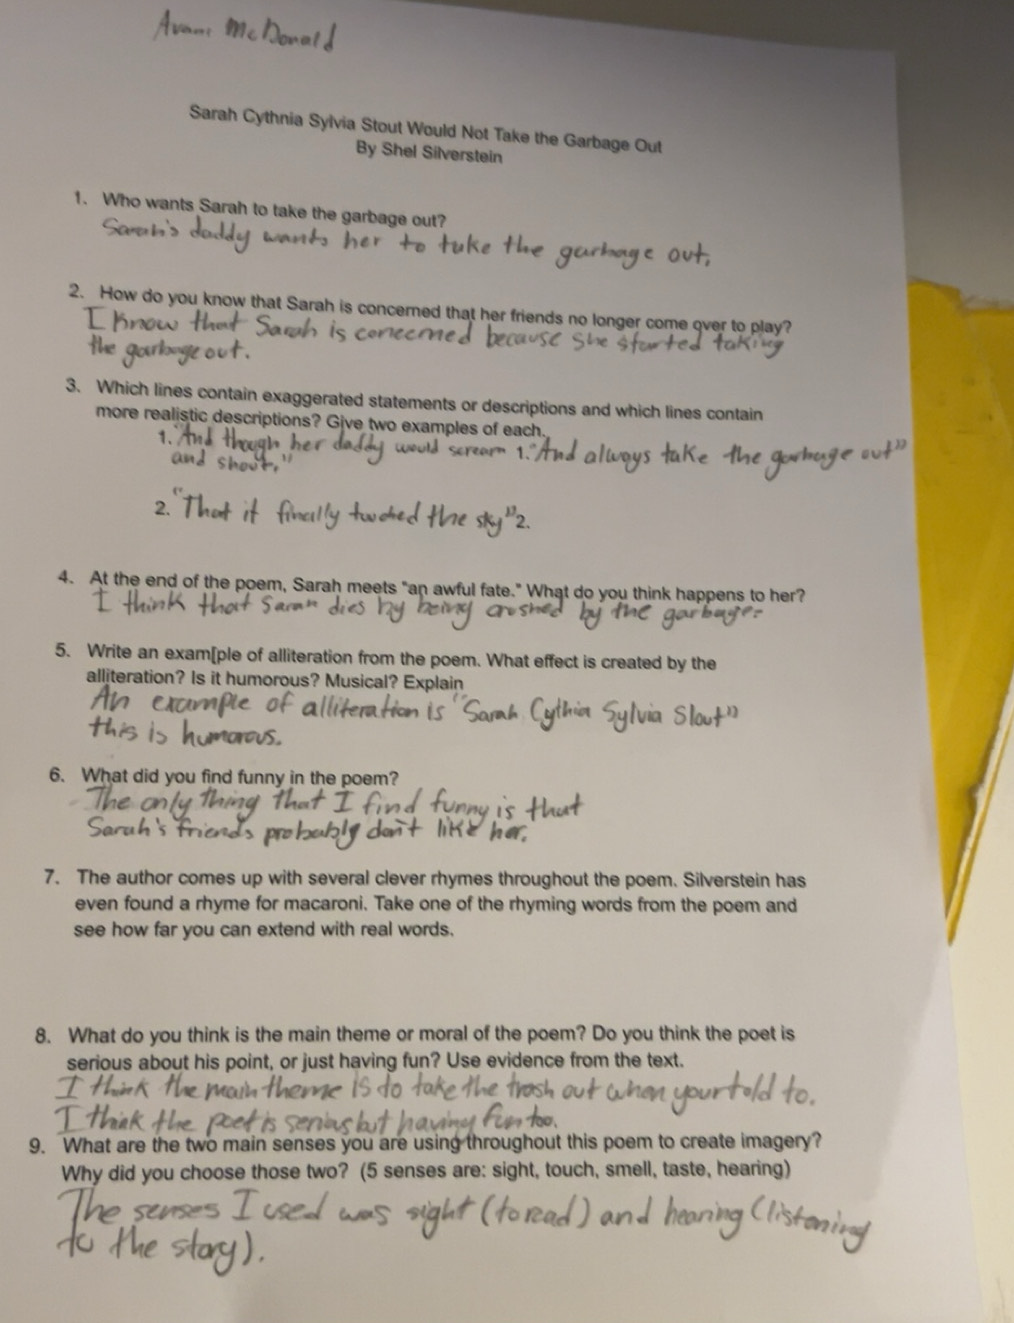 Avani McDonald
Sarah Cythnia Sylvia Stout Would Not Take the Garbage Out
By Shel Silverstein
1. Who wants Sarah to take the garbage out?
Sarah's daddy wants her to take the garbage out.
2. How do you know that Sarah is concerned that her friends no longer come over to play?
I know that Sarah is concerned because she started taking
the garbage out.
3. Which lines contain exaggerated statements or descriptions and which lines contain
more realistic descriptions? Give two examples of each.
1. "And though her daddy would scream 1. "And always take the garbage out"
and shout."
2. "That it finally touched the sky" 2.
4. At the end of the poem, Sarah meets "an awful fate." What do you think happens to her?
I think that Sarah dies by being crushed by the garbage.
5. Write an exam[ple of alliteration from the poem. What effect is created by the
alliteration? Is it humorous? Musical? Explain
An example of alliteration is "Sarah Cythia Sylvia Stout"
this is humorous.
6. What did you find funny in the poem?
The only thing that I find funny is that
Sarah's friends probably don't like her.
7. The author comes up with several clever rhymes throughout the poem. Silverstein has
even found a rhyme for macaroni. Take one of the rhyming words from the poem and
see how far you can extend with real words.
8. What do you think is the main theme or moral of the poem? Do you think the poet is
serious about his point, or just having fun? Use evidence from the text.
I think the main theme is to take the trash out when your told to.
I think the poet is serious but having fun too.
9. What are the two main senses you are using throughout this poem to create imagery?
Why did you choose those two? (5 senses are: sight, touch, smell, taste, hearing)
The senses I used was sight (to read) and hearing (listening
to the story).